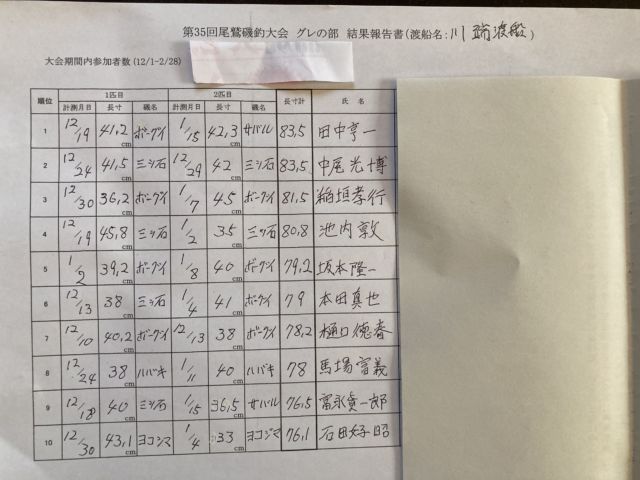 第35回尾鷲磯釣大会 グレの部 結果報告書(渡船名:川端渡船)
大会期間内参加者数(12/1-2/28)
順位 1匹目 2匹目 長寸計 氏名
計測月日 長寸 磯名 計測月日 長寸 磯名
1 12/19 41,2cm ボーグイ 1/15 42,3cm サバル 83,5 田中亨一
2 12/24 41,5cm 三ツ石 12/29 42cm 三ツ石 83,5 中尾光博
3 12/30 36,2cm ボーグイ 1/7 45cm ボーグイ 81,5 稲垣孝行
4 12/19 45,8cm 三ツ石 1/2 35cm 三ツ石 80,8 池内敦
5 1/2 39,2cm ボーグイ 1/8 40cm ボーグイ 79,2 坂本隆一
6 12/13 38cm 三ツ石 1/4 41cm ボーグイ 79 本田真也
7 12/10 40,2cm ボーグイ 12/13 38cm ボーグイ 78,2 樋口徳春
8 12/24 38cm ハバキ 1/11 40cm ハバキ 78 馬場富義
9 12/18 40cm 三ツ石 1/15 36,5cm サバル 76,5 富永貴一郎
10 12/30 43,1cm ヨコジマ 1/4 33cm ヨコジマ 76,1 石田好昭